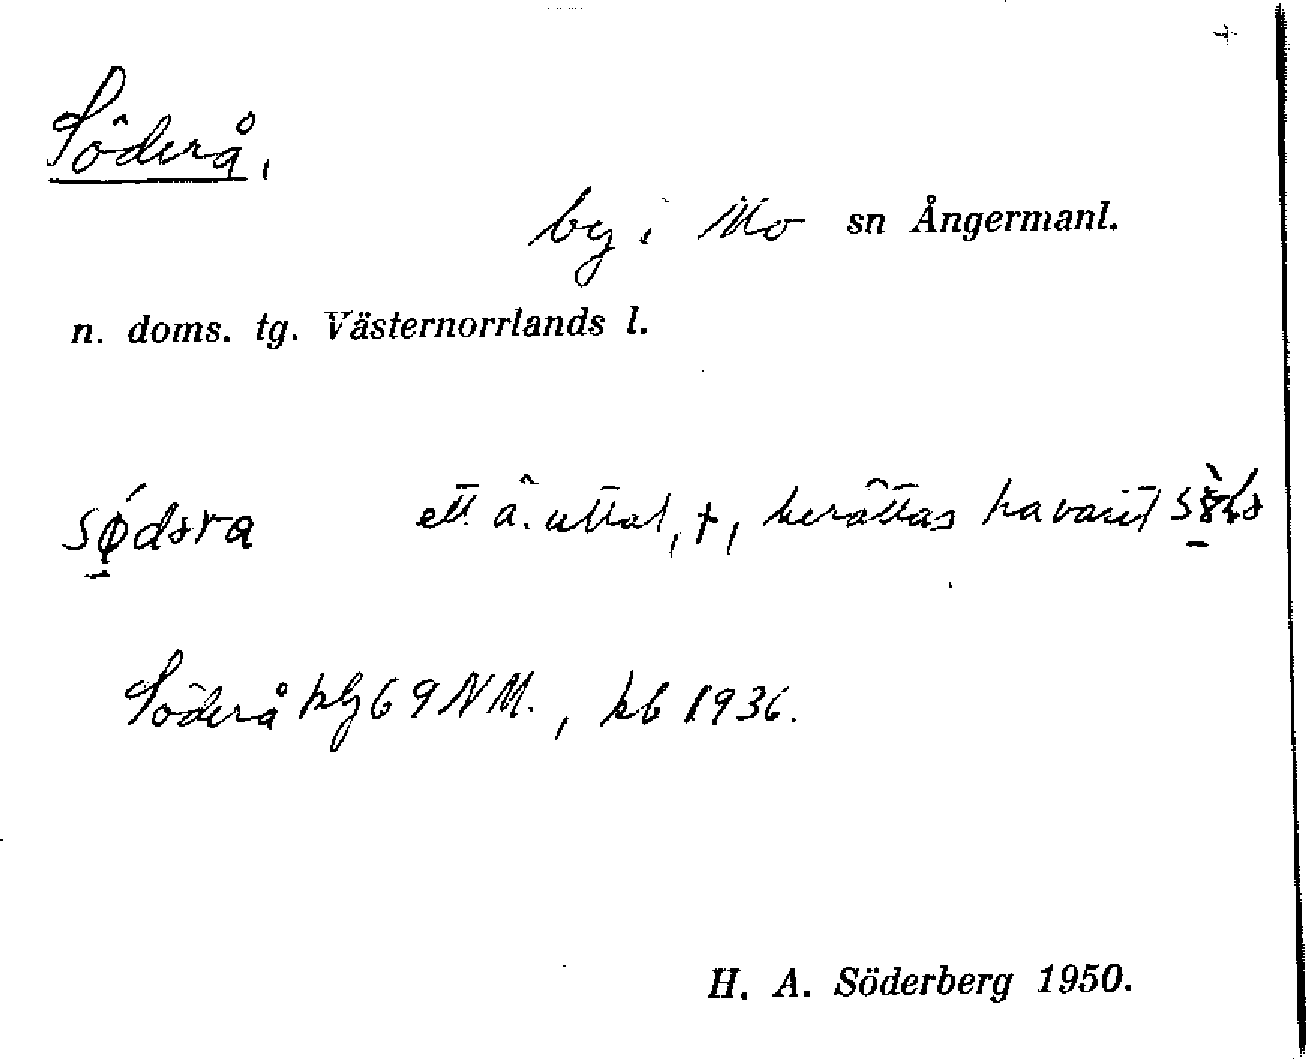 +
Söderå,
by i Mo sn Ångermanl.
n. doms. tg. Västernorrlands l.
sǿdəra ett ä. uttal, +, berättas ha varit
Söderå hlg 69 NM., kb 1936.
H. A. Söderberg 1950.